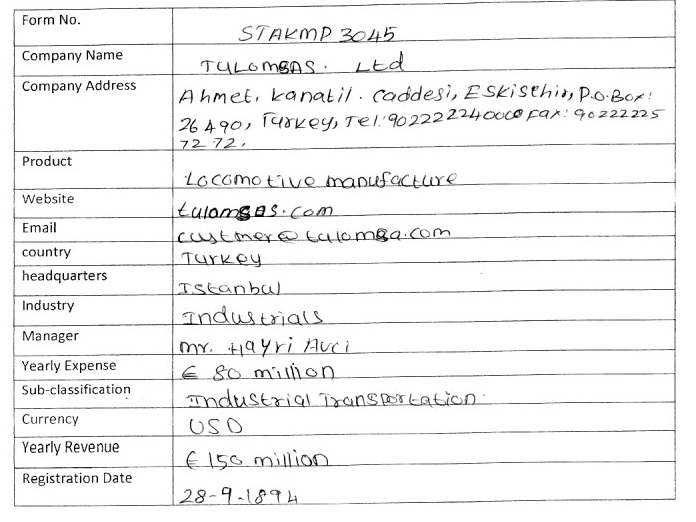 Form No. STAKMP 3045
Company Name TULOMSAS. Ltd
Company Address Ahmet, Kanatil. Caddesi, Eskisehir, P.O.Box:
26490, Turkey, Tel:902222240000 Fax: 90222225
72 72.
Product Locomotive manufacture
Website tulomsas.com
Email custmer@tulomsa.com
country Turkey
headquarters Istanbul
Industry Industrials
Manager mr. Hayri Avci
Yearly Expense € 80 million
Sub-classification Industrial Transportation.
Currency USD
Yearly Revenue € 150 million
Registration Date 28-9-1894